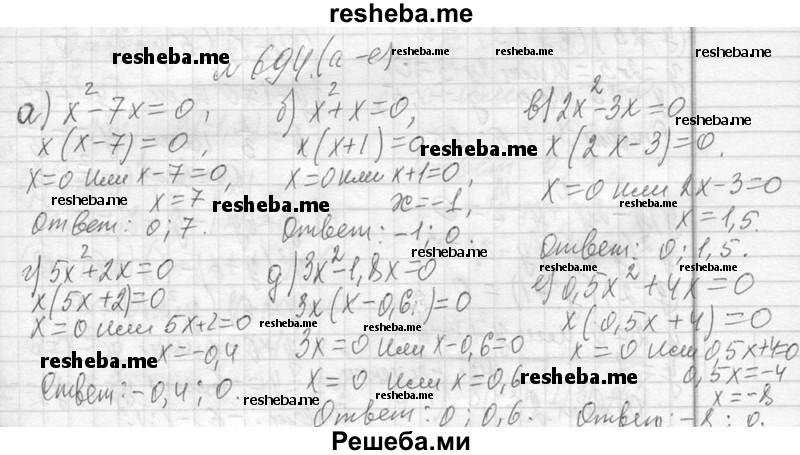 resheba.me
№ 694.(а-е).
а) x²-7x=0,
x(x-7)=0,
x=0 или x-7=0,
x=7
Ответ: 0; 7.
б) x²+x=0,
x(x+1)=0
x=0 или x+1=0,
x=-1,
Ответ: -1; 0.
в) 2x²-3x=0
x(2x-3)=0.
x=0 или 2x-3=0
x=1,5.
Ответ: 0; 1,5.
г) 5x²+2x=0
x(5x+2)=0
x=0 или 5x+2=0
x=-0,4
Ответ: -0,4; 0.
д) 3x²-1,8x=0
3x(x-0,6)=0
3x=0 или x-0,6=0
x=0 или x=0,6
Ответ: 0; 0,6.
е) 0,5x²+4x=0
x(0,5x+4)=0
x=0 или 0,5x+4=0
0,5x=-4
x=-8
Ответ: -8; 0.
resheba.me
resheba.me
resheba.me
resheba.me
resheba.me
resheba.me
resheba.me
resheba.me
resheba.me
resheba.me
resheba.me
resheba.me
resheba.me
resheba.me
Решеба.ми